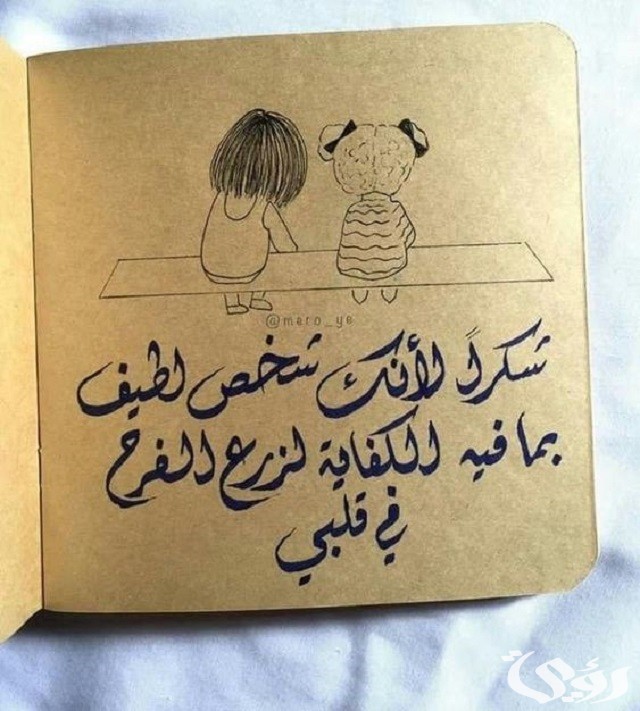 @mero_ye
شكراً لأنك شخص لطيف
بما فيه الكفاية لزرع الفرح
في قلبي
رؤية